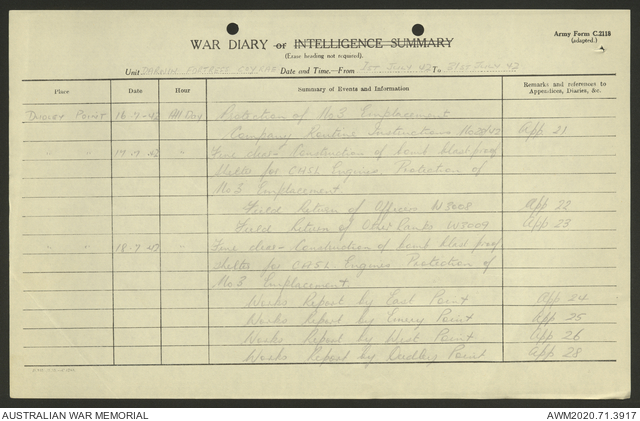 Army Form C.2118
(adapted.)
WAR DIARY or INTELLIGENCE SUMMARY
(Erase heading not required).
Unit DARWIN FORTRESS ENGRS Date and Time.—From 1ST JULY 42 To 31ST JULY 42
Place Date Hour Summary of Events and Information Remarks and references to Appendices, Diaries, &c.
DUDLEY POINT 16-7-42 All Day Protection of No3 Emplacement
Company Routine Instructions App 21
" " 17-7-42 " Fine clear - Construction of bomb blast proof
shelter for CASL Engines. Protection of
No3 Emplacement
Field Return of Officers W3008 App 22
Field Return of Other Ranks W3009 App 23
" " 18-7-42 " Fine clear - Construction of bomb blast proof
shelter for CASL Engines Protection of
No3 Emplacement
Works Report by East Point App 24
Works Report by Emery Point App 25
Works Report by West Point App 26
Works Report by Dudley Point App 28
AUSTRALIAN WAR MEMORIAL AWM2020.71.3917